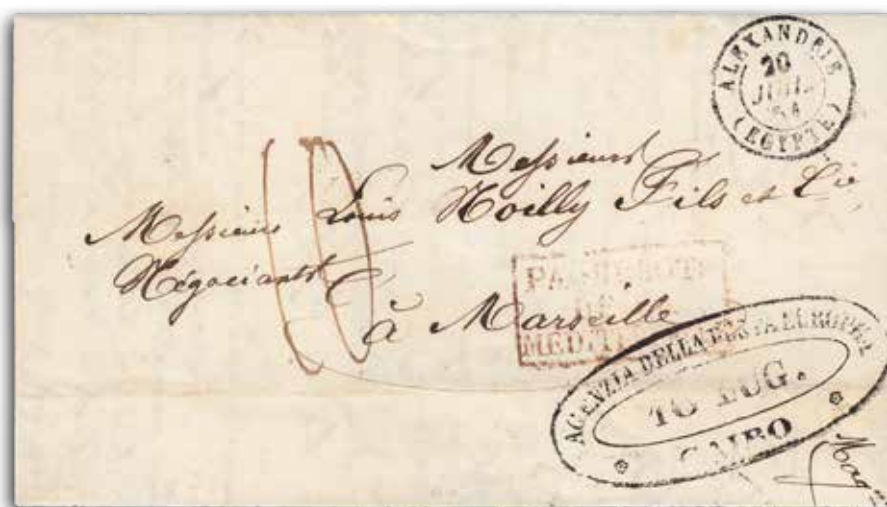 ALEXANDRIE
20
JUIL.
54
(EGYPTE)
Messieurs
Messieurs Louis Noilly Fils et Cie
Négociants
à Marseille
PAQUEBOTS
DE
MEDIT
AGENZIA DELLA POSTA EUROPEA
16 LUG.
CAIRO